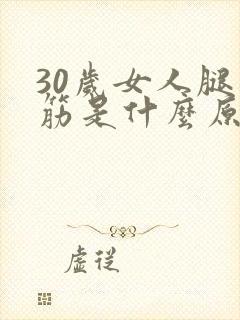 30歲女人腿
筋是什麼原
虛從